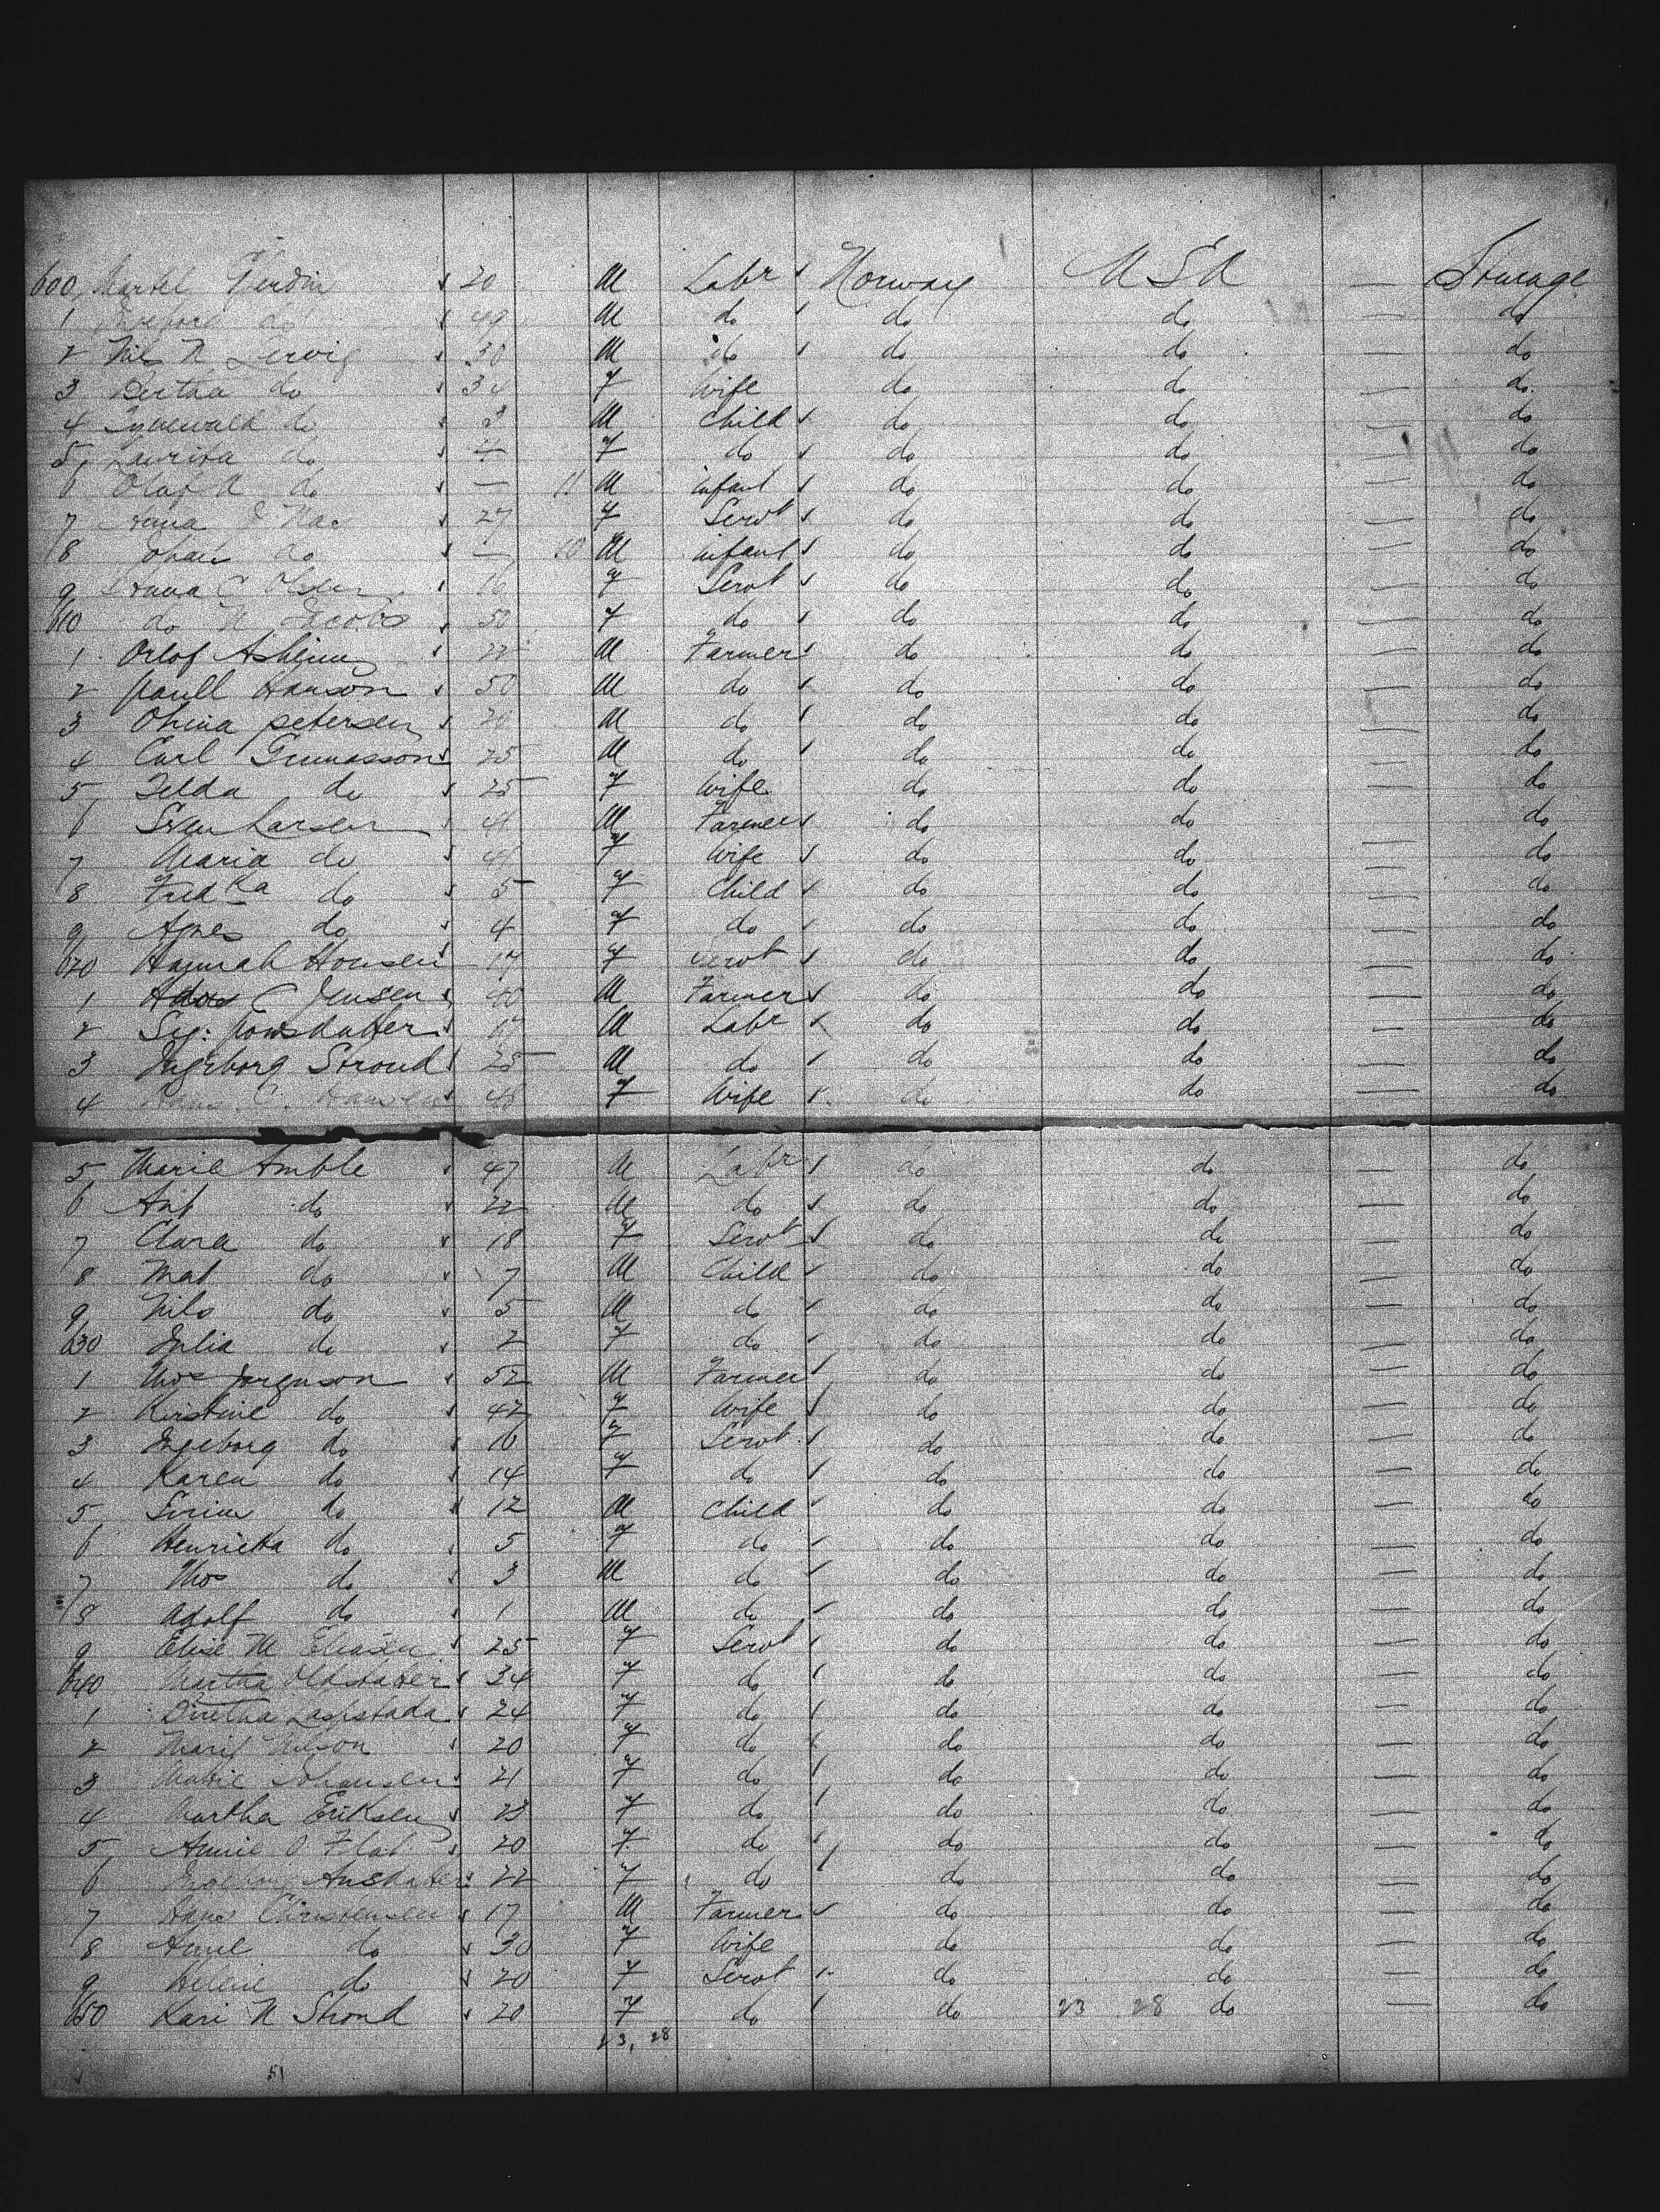 600 Martel 20 M Labr Norway U S A — Steerage
1 Ingeborg do 49 M do do do — do
2 Nils N Lervig 30 M do do do — do
3 Bertha do 34 F Wife do do — do
4 do M Child do do — do
5 Laurita do F do do do — do
6 Olaf A do — 11 M infant do do — do
7 Anna 27 F Servt do do — do
8 Johan do — 10 M infant do do — do
9 Anna C Olsen 16 F Servt do do — do
610 do N Jacobs 50 F do do do — do
1 Orlof 22 M Farmer do do — do
2 Paull Hanson 50 M do do do — do
3 petersen 20 M do do do — do
4 Carl Gunnasson 25 M do do do — do
5 Telda do 25 F Wife do do — do
6 Sven Larsen 41 M Farmer do do — do
7 Maria do 41 F Wife do do — do
8 Fredka do 5 F Child do do — do
9 Agnes do 4 F do do do — do
620 Hannah Honsen 17 F Servt do do — do
1 C Jensen 40 M Farmer do do — do
2 17 M Labr do do — do
3 Ingeborg Stroud 25 M do do do — do
4 Hans C. Hansen 48 F Wife do do — do
5 Marie Amble 47 M Labr do do — do
6 Ant do 22 M do do do — do
7 Clara do 18 F Servt do do — do
8 Mat do 7 M Child do do — do
9 Nils do 5 M do do do — do
630 Julia do 2 F do do do — do
1 Thos Jorgnson 52 M Farmer do do — do
2 Kirstine do 42 F Wife do do — do
3 Ingeborg do 16 F Servt do do — do
4 Karen do 14 F do do do — do
5 do 12 M Child do do — do
6 Henrietta do 5 F do do do — do
7 Thos do 3 M do do do — do
8 Adolf do 1 M do do do — do
9 Elise M Eliasen 25 F Servt do do — do
640 Martha 34 F do do do — do
1 24 F do do do — do
2 Marit Nilson 20 F do do do — do
3 Johansen 21 F do do do — do
4 Martha Eriksen 23 F do do do — do
5 Annie O Flat 20 F do do do — do
6 22 F do do do — do
7 Hans Christensen 17 M Farmer do do — do
8 do 30 F Wife do do — do
9 Helene do 20 F Servt do do — do
650 Kari N Stroud 20 F do do 23 28 do — do
23, 28
51